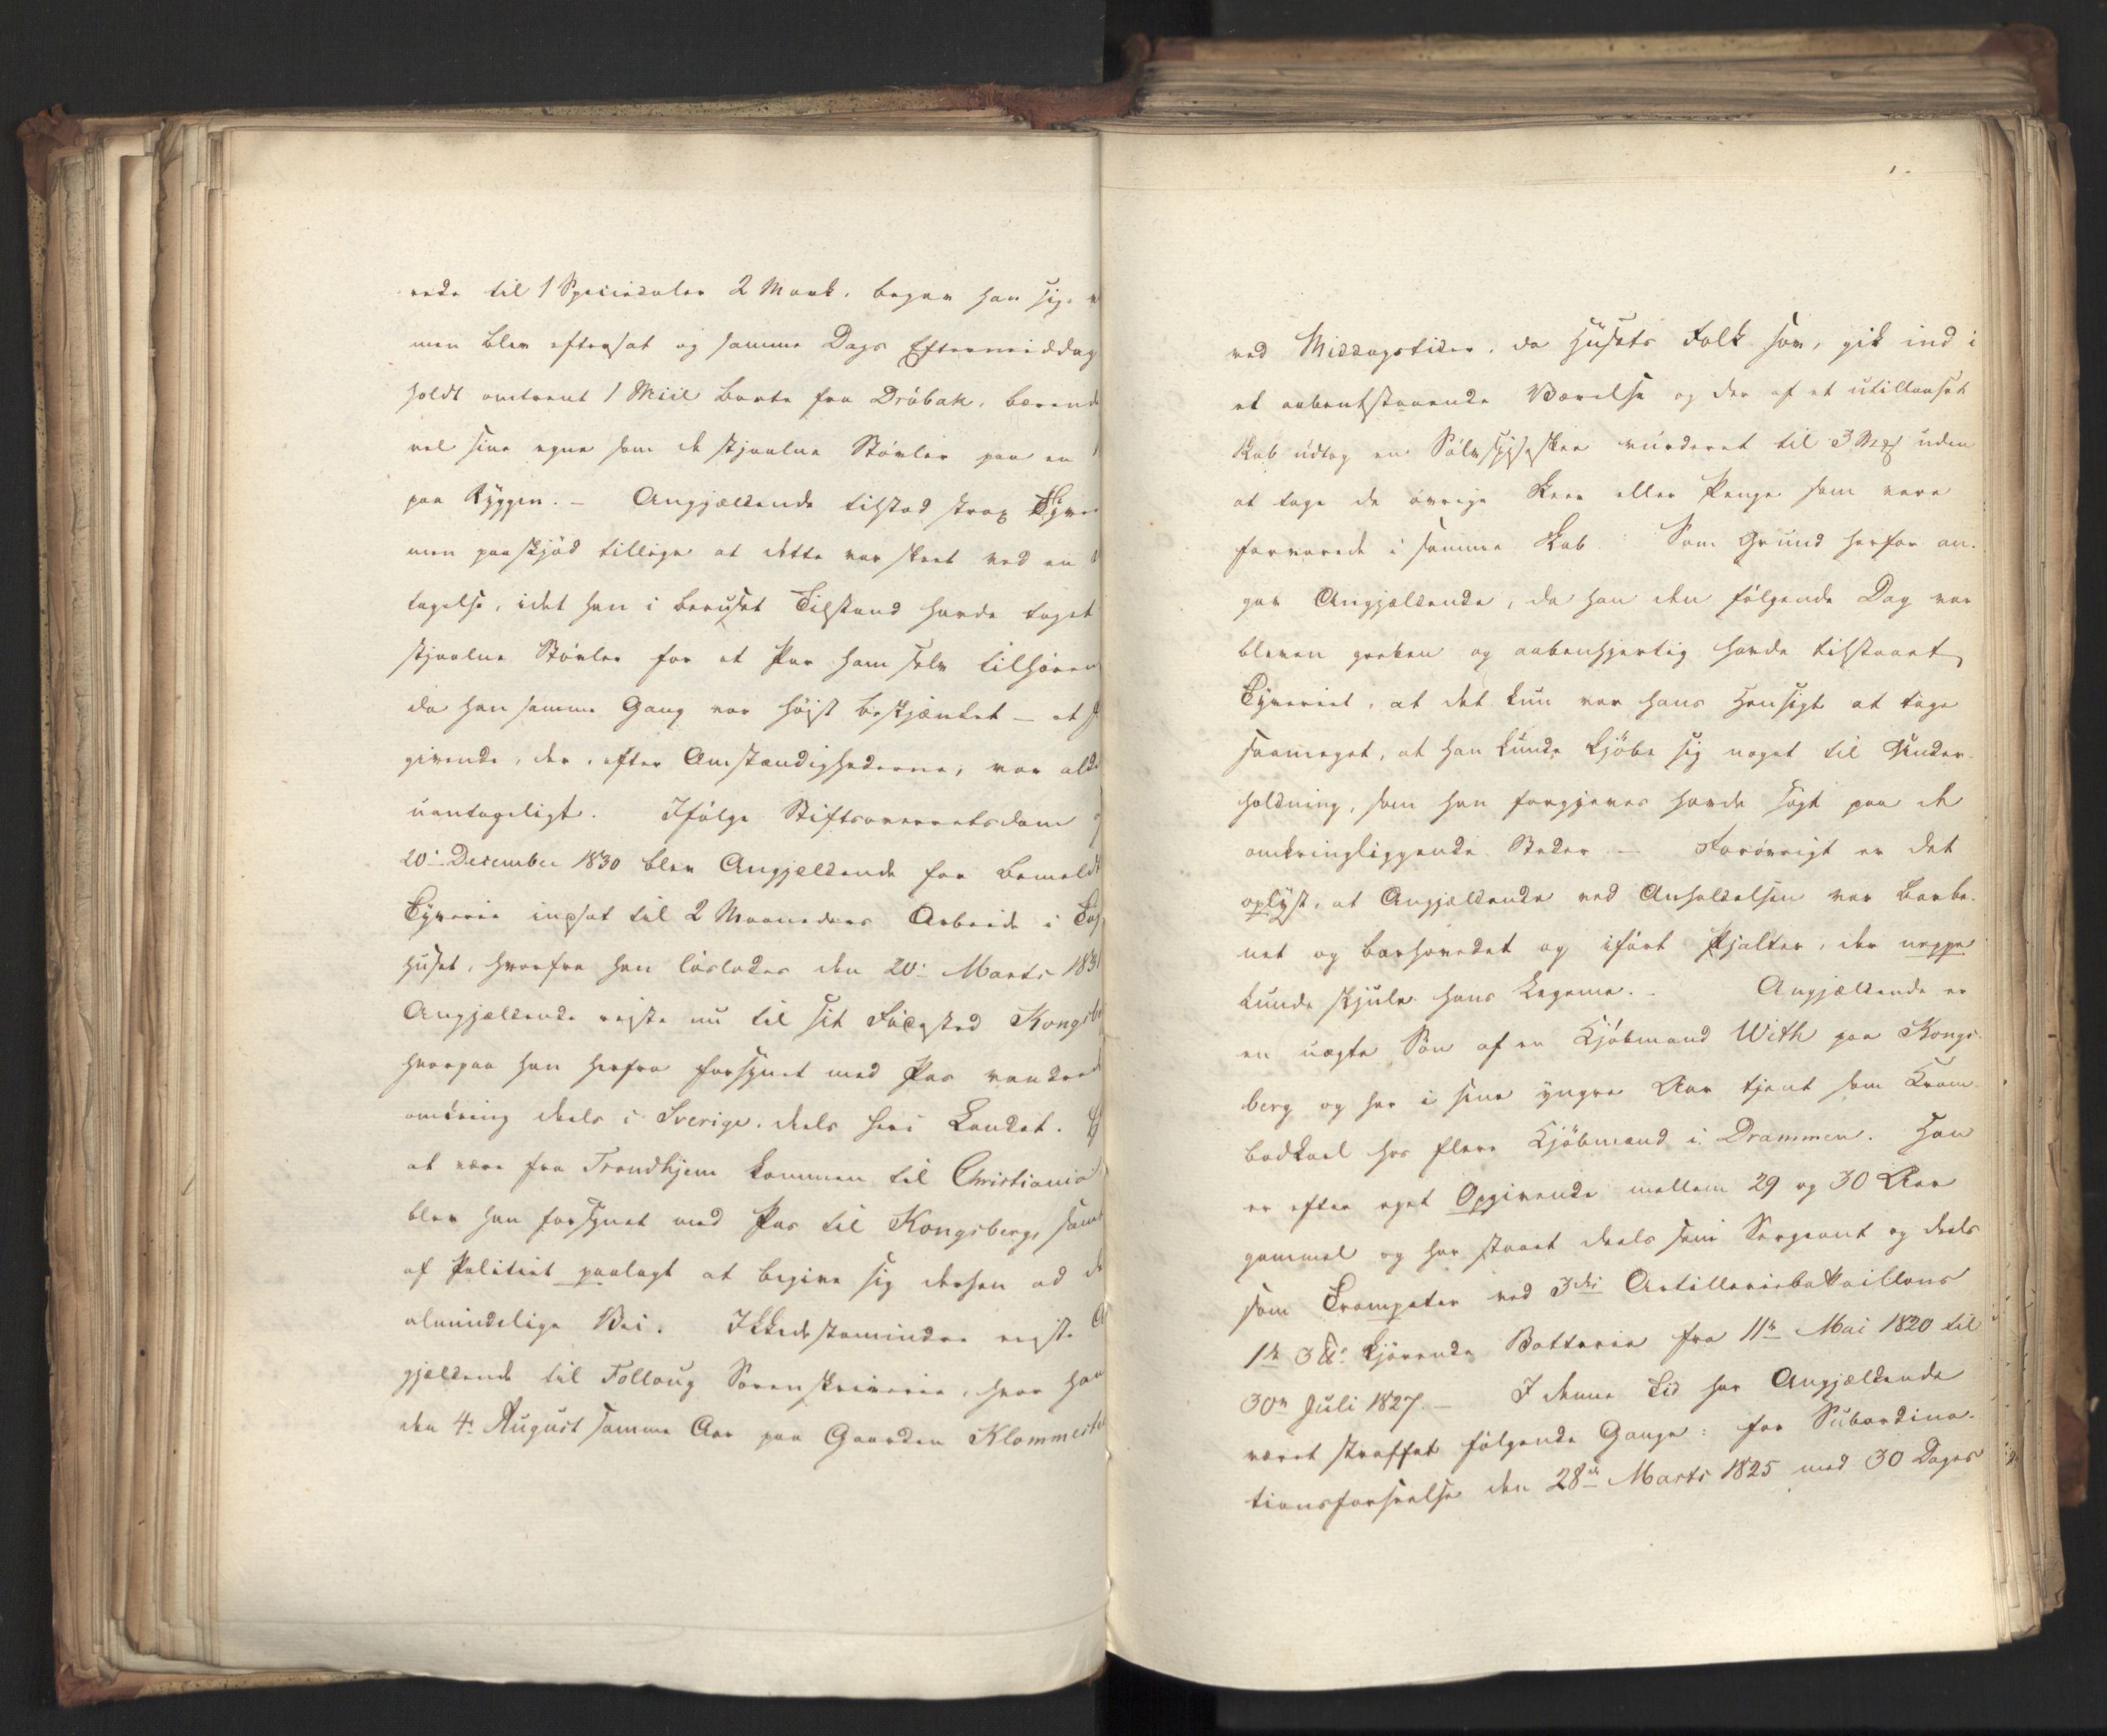 rede til 1 Speciedaler 2 Mark, begav han sig
men blev eftersat og samme Dags Eftermiddag
holdt omtrent 1 Miil borte fra Dröbak, bærende
vel sine egne som de stjaalne Stövler paa en
paa Ryggen. – Angjældende tilstod strax Tyve
men paaskjöd tillige at dette var skeet ved en
tagelse, idet han i beruset Tilstand havde taget
stjaalne Stövler for et Par ham selv tilhören
da han samme Gang var höist beskjænket – et
givende, der, efter Omstændighederne, var alde
uantageligt. Ifölge Stiftsoverretsdom
20de December 1830 blev Angjældende for bemeldt
Tyverie indsat til 2 Maaneders Arbeide i Tugt
huset, hvorfra han löslodes den 20de Marts 1831
Angjældende reiste nu til sit Födested Kongsbe
hvorpaa han herfra forsynet med Pas vandred
omkring deels i Sverige, deels her i Landet.
at være fra Trondhjem kommen til Christiania
blev han forsynet med Pas til Kongsberg, samt
af Politiet paalagt at begive sig dershen ad d
almindelige Vei. Ikkedestomindre reiste A
gjældende til Follaug Sorenskriverie, hvor han
den 4de August samme Aar paa Gaarden Klommest
ved Middagstider, da Husets Folk sov, gik ind i
et aabentstaaende Værelse og der af et utillaaset
Skab udtog en Sölvspiseskee vurderet til 3 uden
at tage de övrige Skeer eller Penge som vare
forvarede i samme Skab: Som Grund herfor an-
gav Angjældende, da han den fölgende Dag var
bleven greben og aabenhjertig havde tilstaaet
Tyveriet, at det kun var hans Hensigt at tage
saameget, at han kunde kjöbe sig noget til Under-
holdning, som han forgjeves havde sögt paa de
omkringliggende Steder. – Forövrigt er det
oplyst, at Angjældende ved Anholdelsen var barbe-
net og barhovedet og ifört Pjalter, der neppe
kunde skjule hans Legeme. – Angjældende er
en uægte Sön af en Kjöbmand With paa Kongs-
berg og har i sine yngre Aar tjent som Kram-
bodkarl hos flere Kjöbmænd i Drammen. Han
er efter eget Opgivende mellem 29 og 30 Aar
gammel og har staaet deels som Sergeant og deels
som Trompeter ved 3die Artilleriebataillons
1ste 3 kjörende Batterie fra 11te Mai 1820 til
30te Juli 1827. – I denne Tid har Angjældende
været straffet fölgende Gange: for Subordina-
tionsforseelse den 28de Marts 1825 med 30 Dages